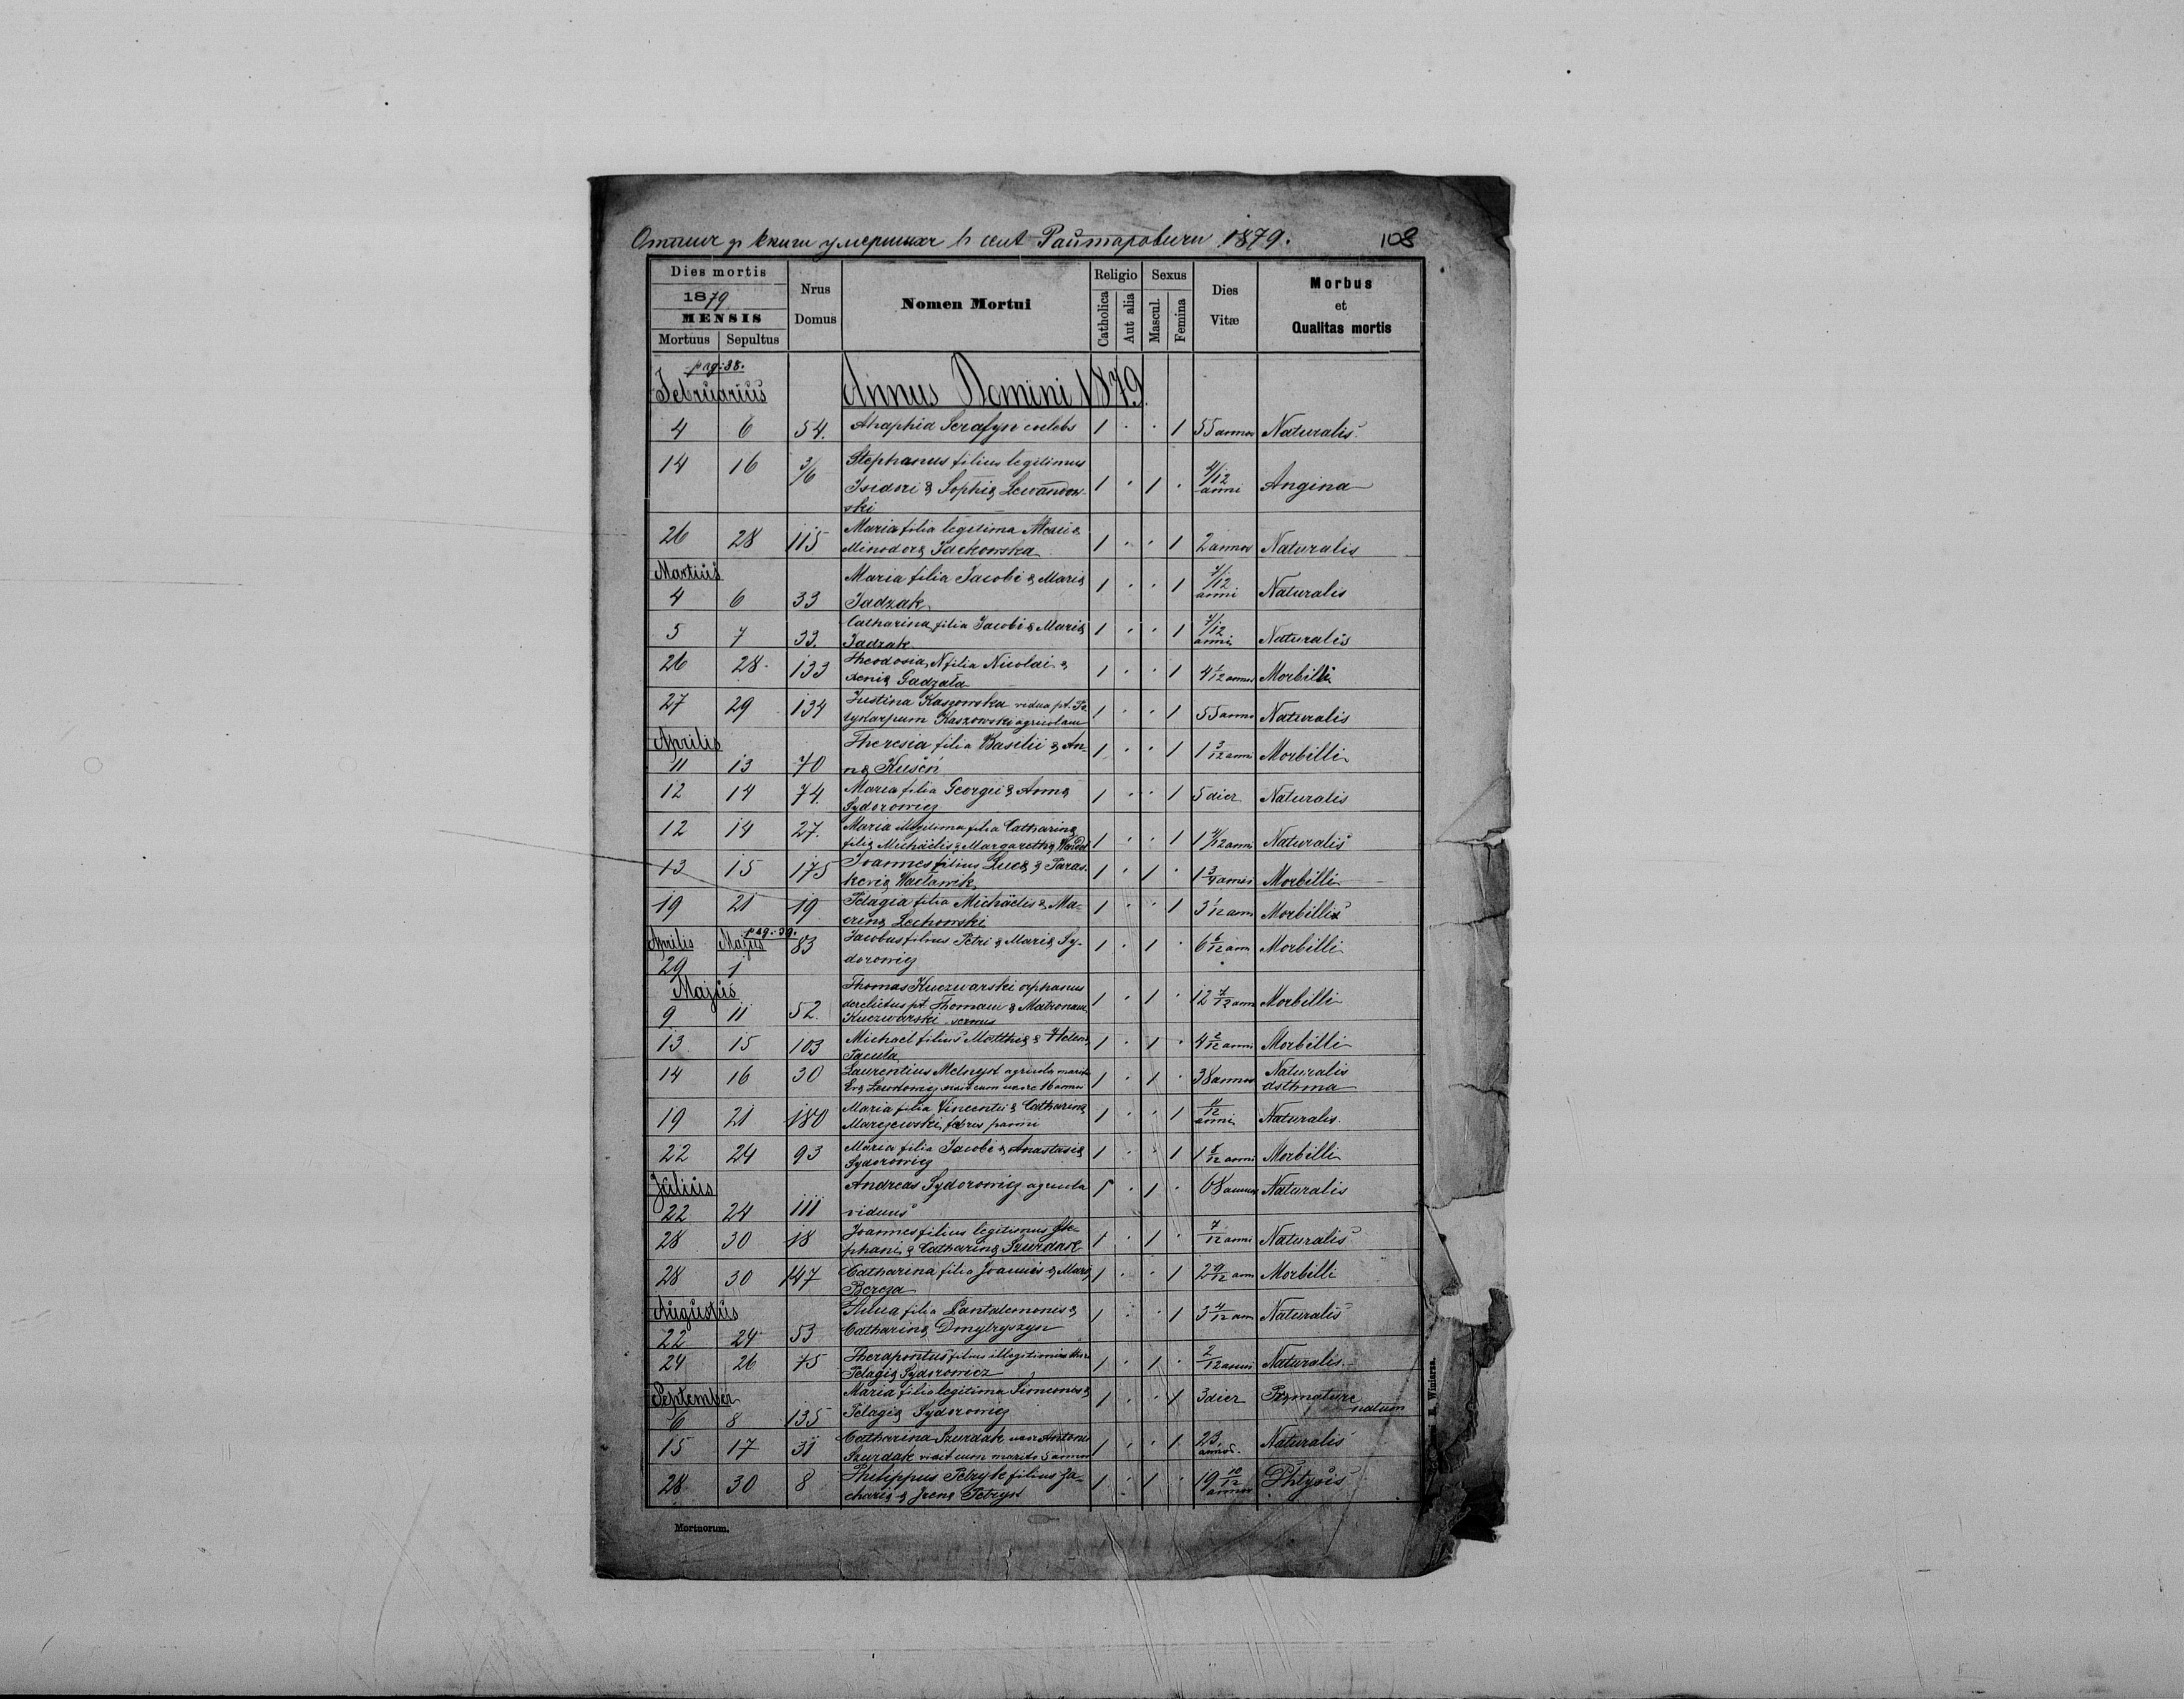 Отпись зъ книги умершихъ въ селѣ Райтаровичи 1879. 108
Dies mortis
1879
MENSIS
Mortuus Sepultus
Nrus
Domus
Nomen Mortui
Religio
Catholica
Aut alia
Sexus
Mascul.
Femina
Dies
Vitæ
Morbus
et
Qualitas mortis
pag: 38.
Februarius Annus Domini 1879.
4 6 54. Ahaphia Serafyn celebs 1 . . 1 55 annos Naturalis
14 16 3/6 Stephanus filius legitimus
Isidori & Sophiæ Lewandow- 1 . 1 . 4/12 anni Angina
ski
26 28 115 Maria filia legitima
Minodoræ Jackowska 1 . . 1 2 annos Naturalis
Martius
4 6 33 Maria filia Jacobi & Mariæ 1 . . 1 4/12 anni Naturalis
Jadzak
5 7 33. Catharina filia Jacobi & Mariæ 1 . . 1 4/12 anni Naturalis
Jadzak
26 28 133 Theodosia filia Nicolai &
Xeniæ Gadzała 1 . . 1 4 1/12 annos Morbilli
27 29 134 Justina Kaszowska vidua pt. Po-
lykarpum Kaszowski agricolam 1 . . 1 55 anno Naturalis
Aprilis
11 13 70 Theresia filia Basilii & An- 1 . . 1 1 3/12 anni Morbilli
næ Kuśeń
12 14 74. Maria filia Georgii & Annæ 1 . . 1 5 dier Naturalis
Sydorowicz
12 14 27. Maria illegitima filia Catharinæ
filiæ Michaelis & Margarethæ 1 . . 1 1 4/12 anni Naturalis
13 15 175 Joannes filius Lucæ & Paras-
keviæ Wacławik 1 . 1 . 1 3/4 anni Morbilli
19 21 19 Pelagia filia Michaelis & Ma-
crinæ Lechowski 1 . . 1 3 1/12 ann Morbilli
pag: 39.
Aprilis Majus
29 1 83 Jacobus filius Petri & Mariæ Sy- 1 . 1 . 6 6/12 ann Morbilli
dorowicz
Majus
9 11 52. Thomas Kuczwarski orphanus
derelictus pt. Thomam & Matronam 1 . 1 . 12 7/12 ann Morbilli
Kuczwarski servus
13 15 103 Michael filius Matthiæ & Helenæ 1 . 1 . 4 2/12 anni Morbilli
Pacuła
14 16 30 Laurentius Melnyk agricola marit
Evæ vixit cum uxore 16 annos 1 . 1 . 38 annos Naturalis
asthma
19 21 180 Maria filia Vincentii & Catharinæ 1 . . 1 11/12 anni Naturalis
Marejewski
22 24 93 Maria filia Jacobi & Anastasiæ 1 . . 1 1 8/12 anni Morbilli
Sydorowicz
Julius
22 24 111 Andreas Sydorowicz agricola 1 . 1 . 68 annos Naturalis
viduus
28 30 18 Joannes filius legitimus Ste-
phani & Catharinæ Szurdak 1 . 1 . 7/12 anni Naturalis
28 30 147 Catharina filia Joannis & Mariæ 1 . . 1 2 9/12 ann Morbilli
Bereza
Augustus
22 24 53 filia Pantalemonis & 1 . . 1 3 4/12 ann Naturalis
Catharinæ Dmytryszyn
24 26 75 Therapontus filius illegitimus
Pelagiæ Sydorowicz 1 . 1 . 2/12 anni Naturalis
September
6 8 135 Maria filia legitima Simeonis & 1 . . 1 3 dier Præmature
natum
Pelagiæ Sydorowicz
15 17 31 Catharina Szurdak uxor Antonii
Szurdak vixit cum marito 5 annos 1 . . 1 23 annos. Naturalis
28 30 8 Philippus Petryk filius Za-
chariæ & Irenæ Petryk 1 . 1 . 19 10/12 annos Phtysis
Mortuorum.
E. Winiarza.